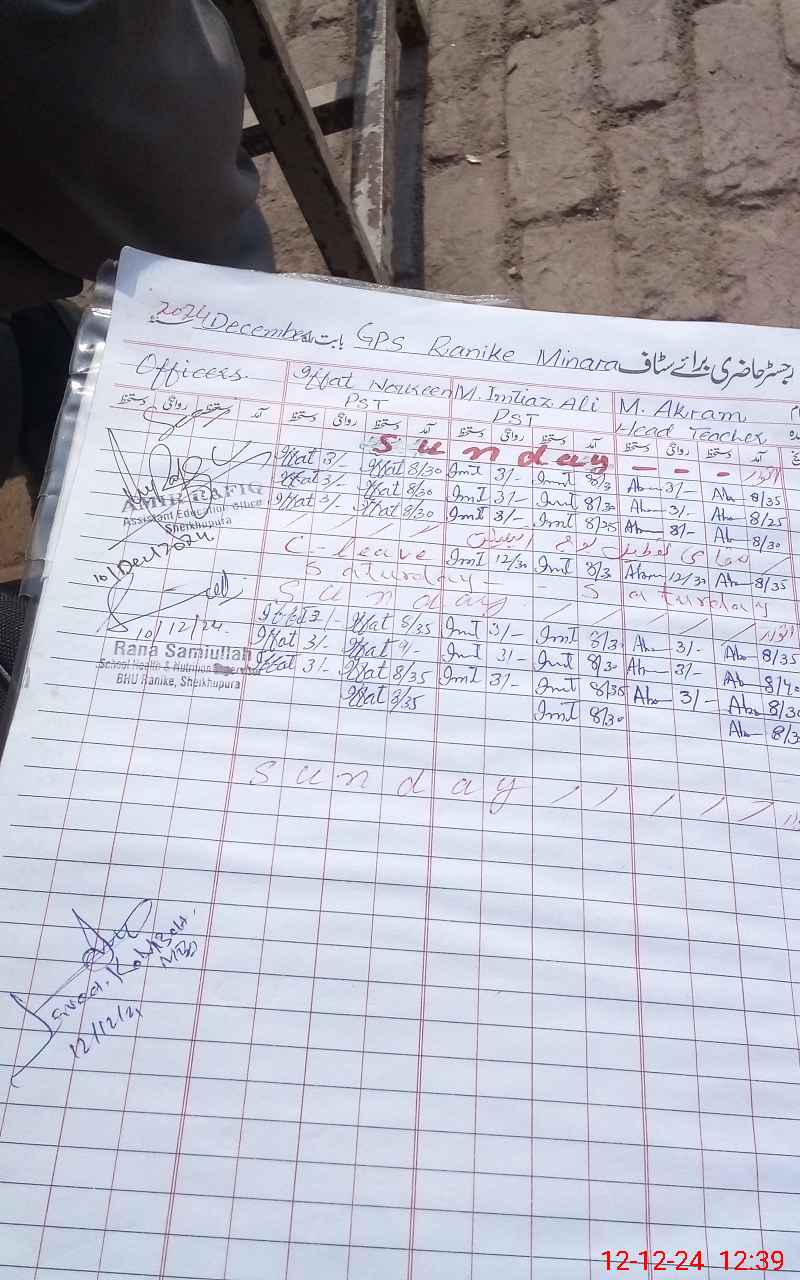 2024 December بابت ماہ GPS Ranike Minara رجسٹر حاضری برائے سٹاف
Officers. Iffat Nousheen M. Imtiaz Ali M. Akram
PST PST Head Teacher
دستخط روانگی دستخط آمد دستخط روانگی دستخط آمد دستخط روانگی دستخط آمد دستخط روانگی دستخط آمد
Sunday - - - اتوار
Iffat 3/- Iffat 8/30 Imt 3/- Imt 8/30 Ab 3/- Ab 8/35
Iffat 3/- Iffat 8/30 Imt 3/- Imt 8/30 Ab 3/- Ab 8/25
Iffat 3/- Iffat 8/30 Imt 3/- Imt 8/25 Ab 3/- Ab 8/30
مقامی تعطیل
C-leave Imt 12/30 Imt 8/30 Ab 12/30 Ab 8/35
Saturday - - Saturday
Sunday اتوار
Iffat 3/- Iffat 8/35 Imt 3/- Imt 8/30 Ab 3/- Ab 8/35
Iffat 3/- Iffat 9/- Imt 3/- Imt 8/30 Ab 3/- Ab 8/40
Iffat 3/- Iffat 8/35 Imt 3/- Imt 8/35 Ab 3/- Ab 8/30
Iffat 8/35 Imt 8/30 Ab 8/3
Sunday
AMIR RAFIQ
Assistant Education Officer
Sheikhupura
10/Dec/2024
10/12/24.
Rana Samiullah
School Health & Nutrition Supervisor
BHU Ranike, Sheikhupura
12/12/24
12-12-24 12:39